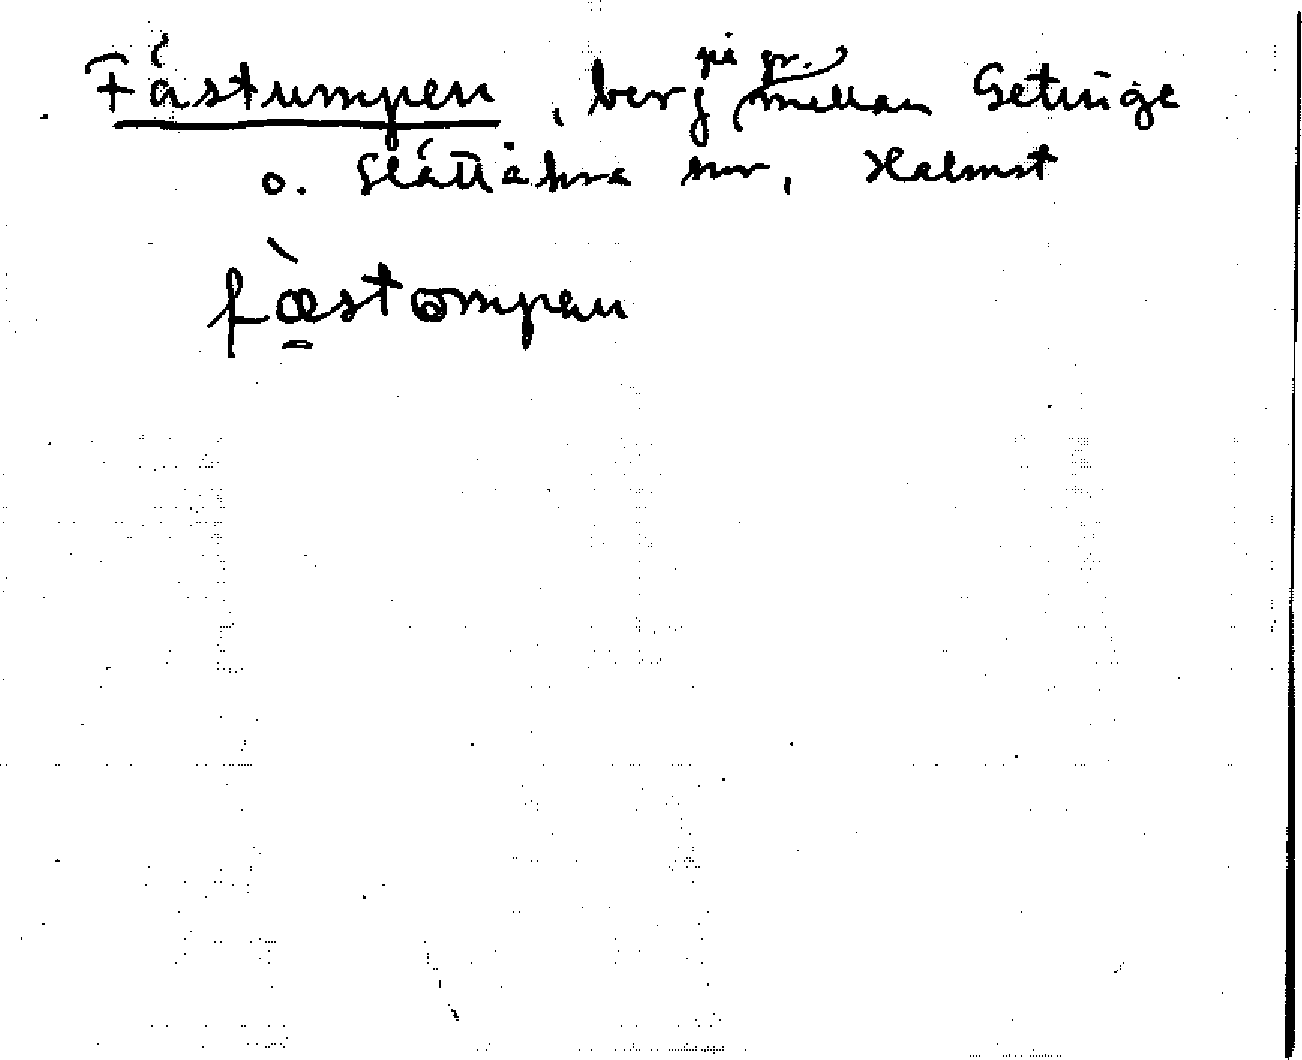 Fåstumpen, berg på gr. mellan Getinge
o. Slättåkra snr, Halmst
fàstompen